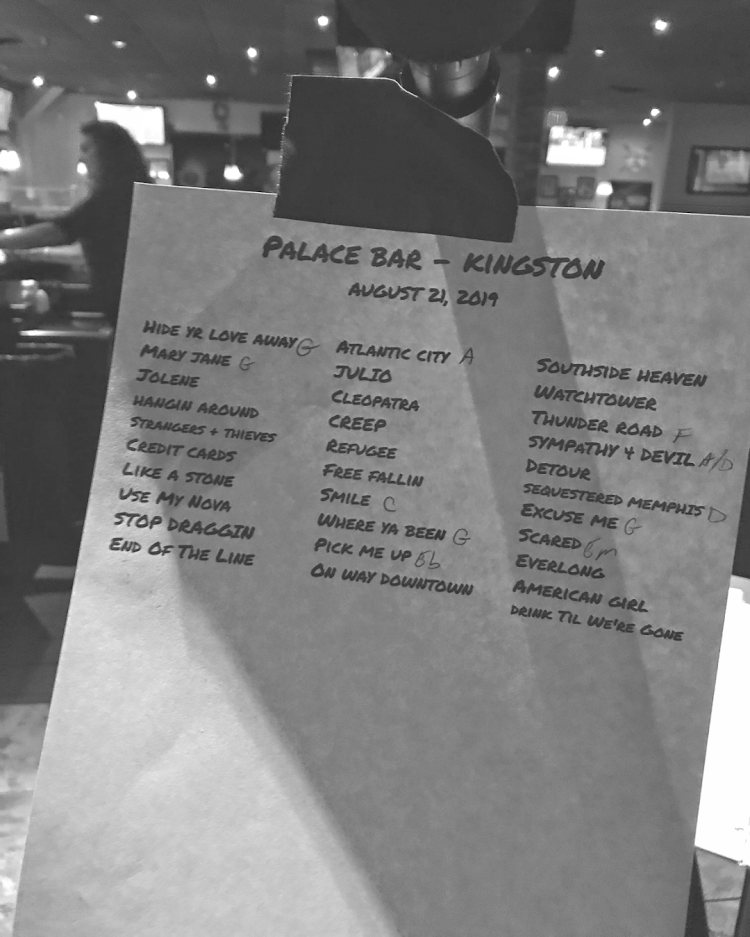 PALACE BAR - KINGSTON
AUGUST 21, 2019
HIDE YR LOVE AWAY G
MARY JANE G
JOLENE
HANGIN AROUND
STRANGERS + THIEVES
CREDIT CARDS
LIKE A STONE
USE MY NOVA
STOP DRAGGIN
END OF THE LINE
ATLANTIC CITY A
JULIO
CLEOPATRA
CREEP
REFUGEE
FREE FALLIN
SMILE C
WHERE YA BEEN G
PICK ME UP Bb
ON WAY DOWNTOWN
SOUTHSIDE HEAVEN
WATCHTOWER
THUNDER ROAD F
SYMPATHY 4 DEVIL A/D
DETOUR
SEQUESTERED MEMPHIS D
EXCUSE ME G
SCARED Em
EVERLONG
AMERICAN GIRL
DRINK TIL WE'RE GONE